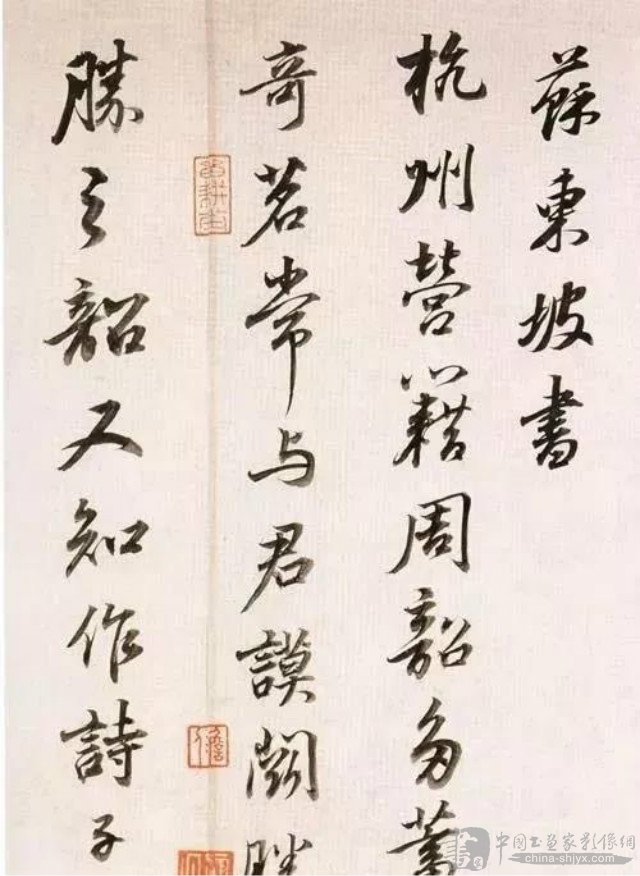 蘇東坡書
杭州營籍周韶多蓄
奇茗常与君謨闘勝
勝之韶又知作詩子
中国书画家影像網
china-shjyx.com